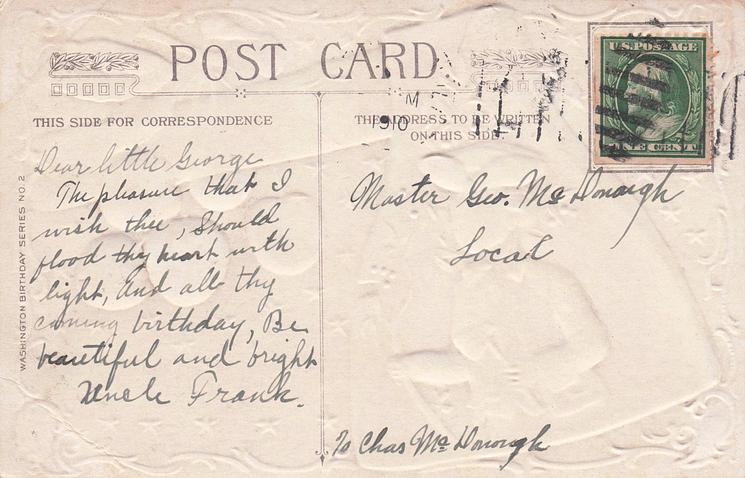 POST CARD
THIS SIDE FOR CORRESPONDENCE
THE ADDRESS TO BE WRITTEN
ON THIS SIDE.
M
1910
U.S. POSTAGE
ONE CENT
Dear little George
The pleasure that I
wish thee, Should
flood thy heart with
light, And all thy
coming birthday, Be
beautiful and bright
Uncle Frank.
Master Geo. McDonough
Local
To Chas McDonough
WASHINGTON BIRTHDAY SERIES NO. 2